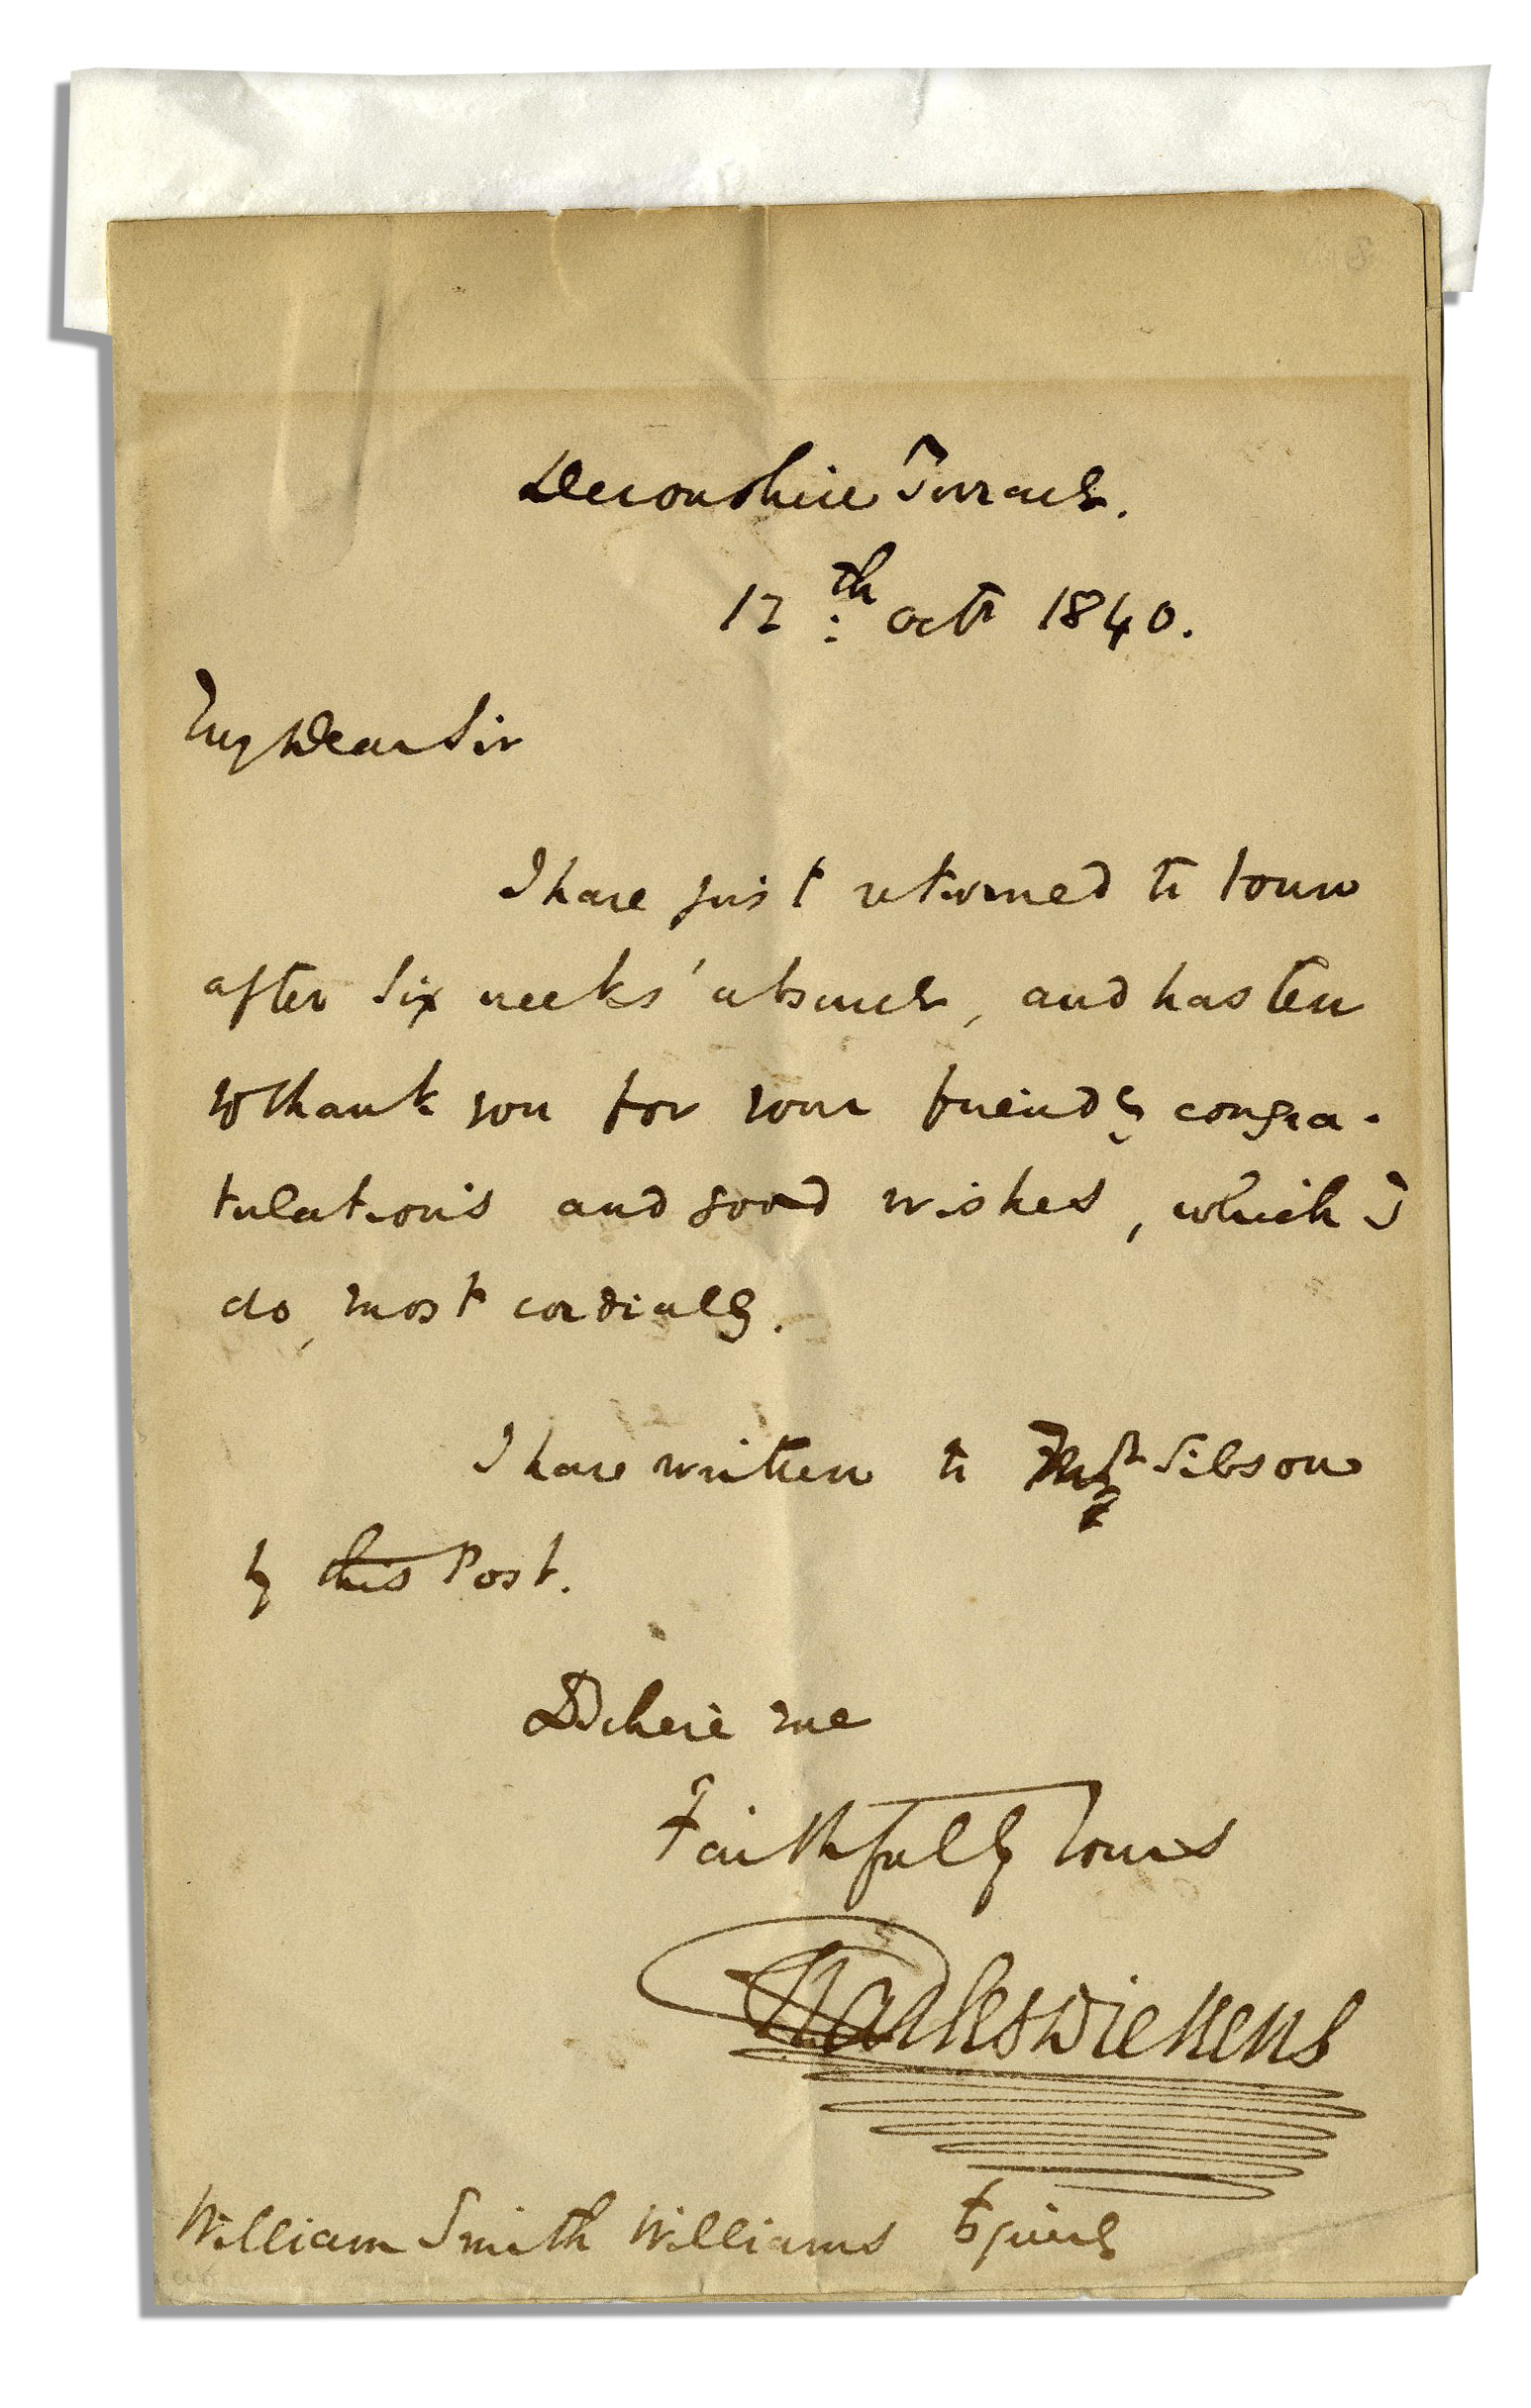 Devonshire Terrace.
12th Octr 1840.
My Dear Sir
I have just returned to town
after six weeks' absence, and hasten
to thank you for your friendly congra-
tulations and good wishes, which I
do, most cordially.
I have written to Mr Sibson
by this Post.
Believe me
Faithfully Yours
Charles Dickens
William Smith Williams Esquire